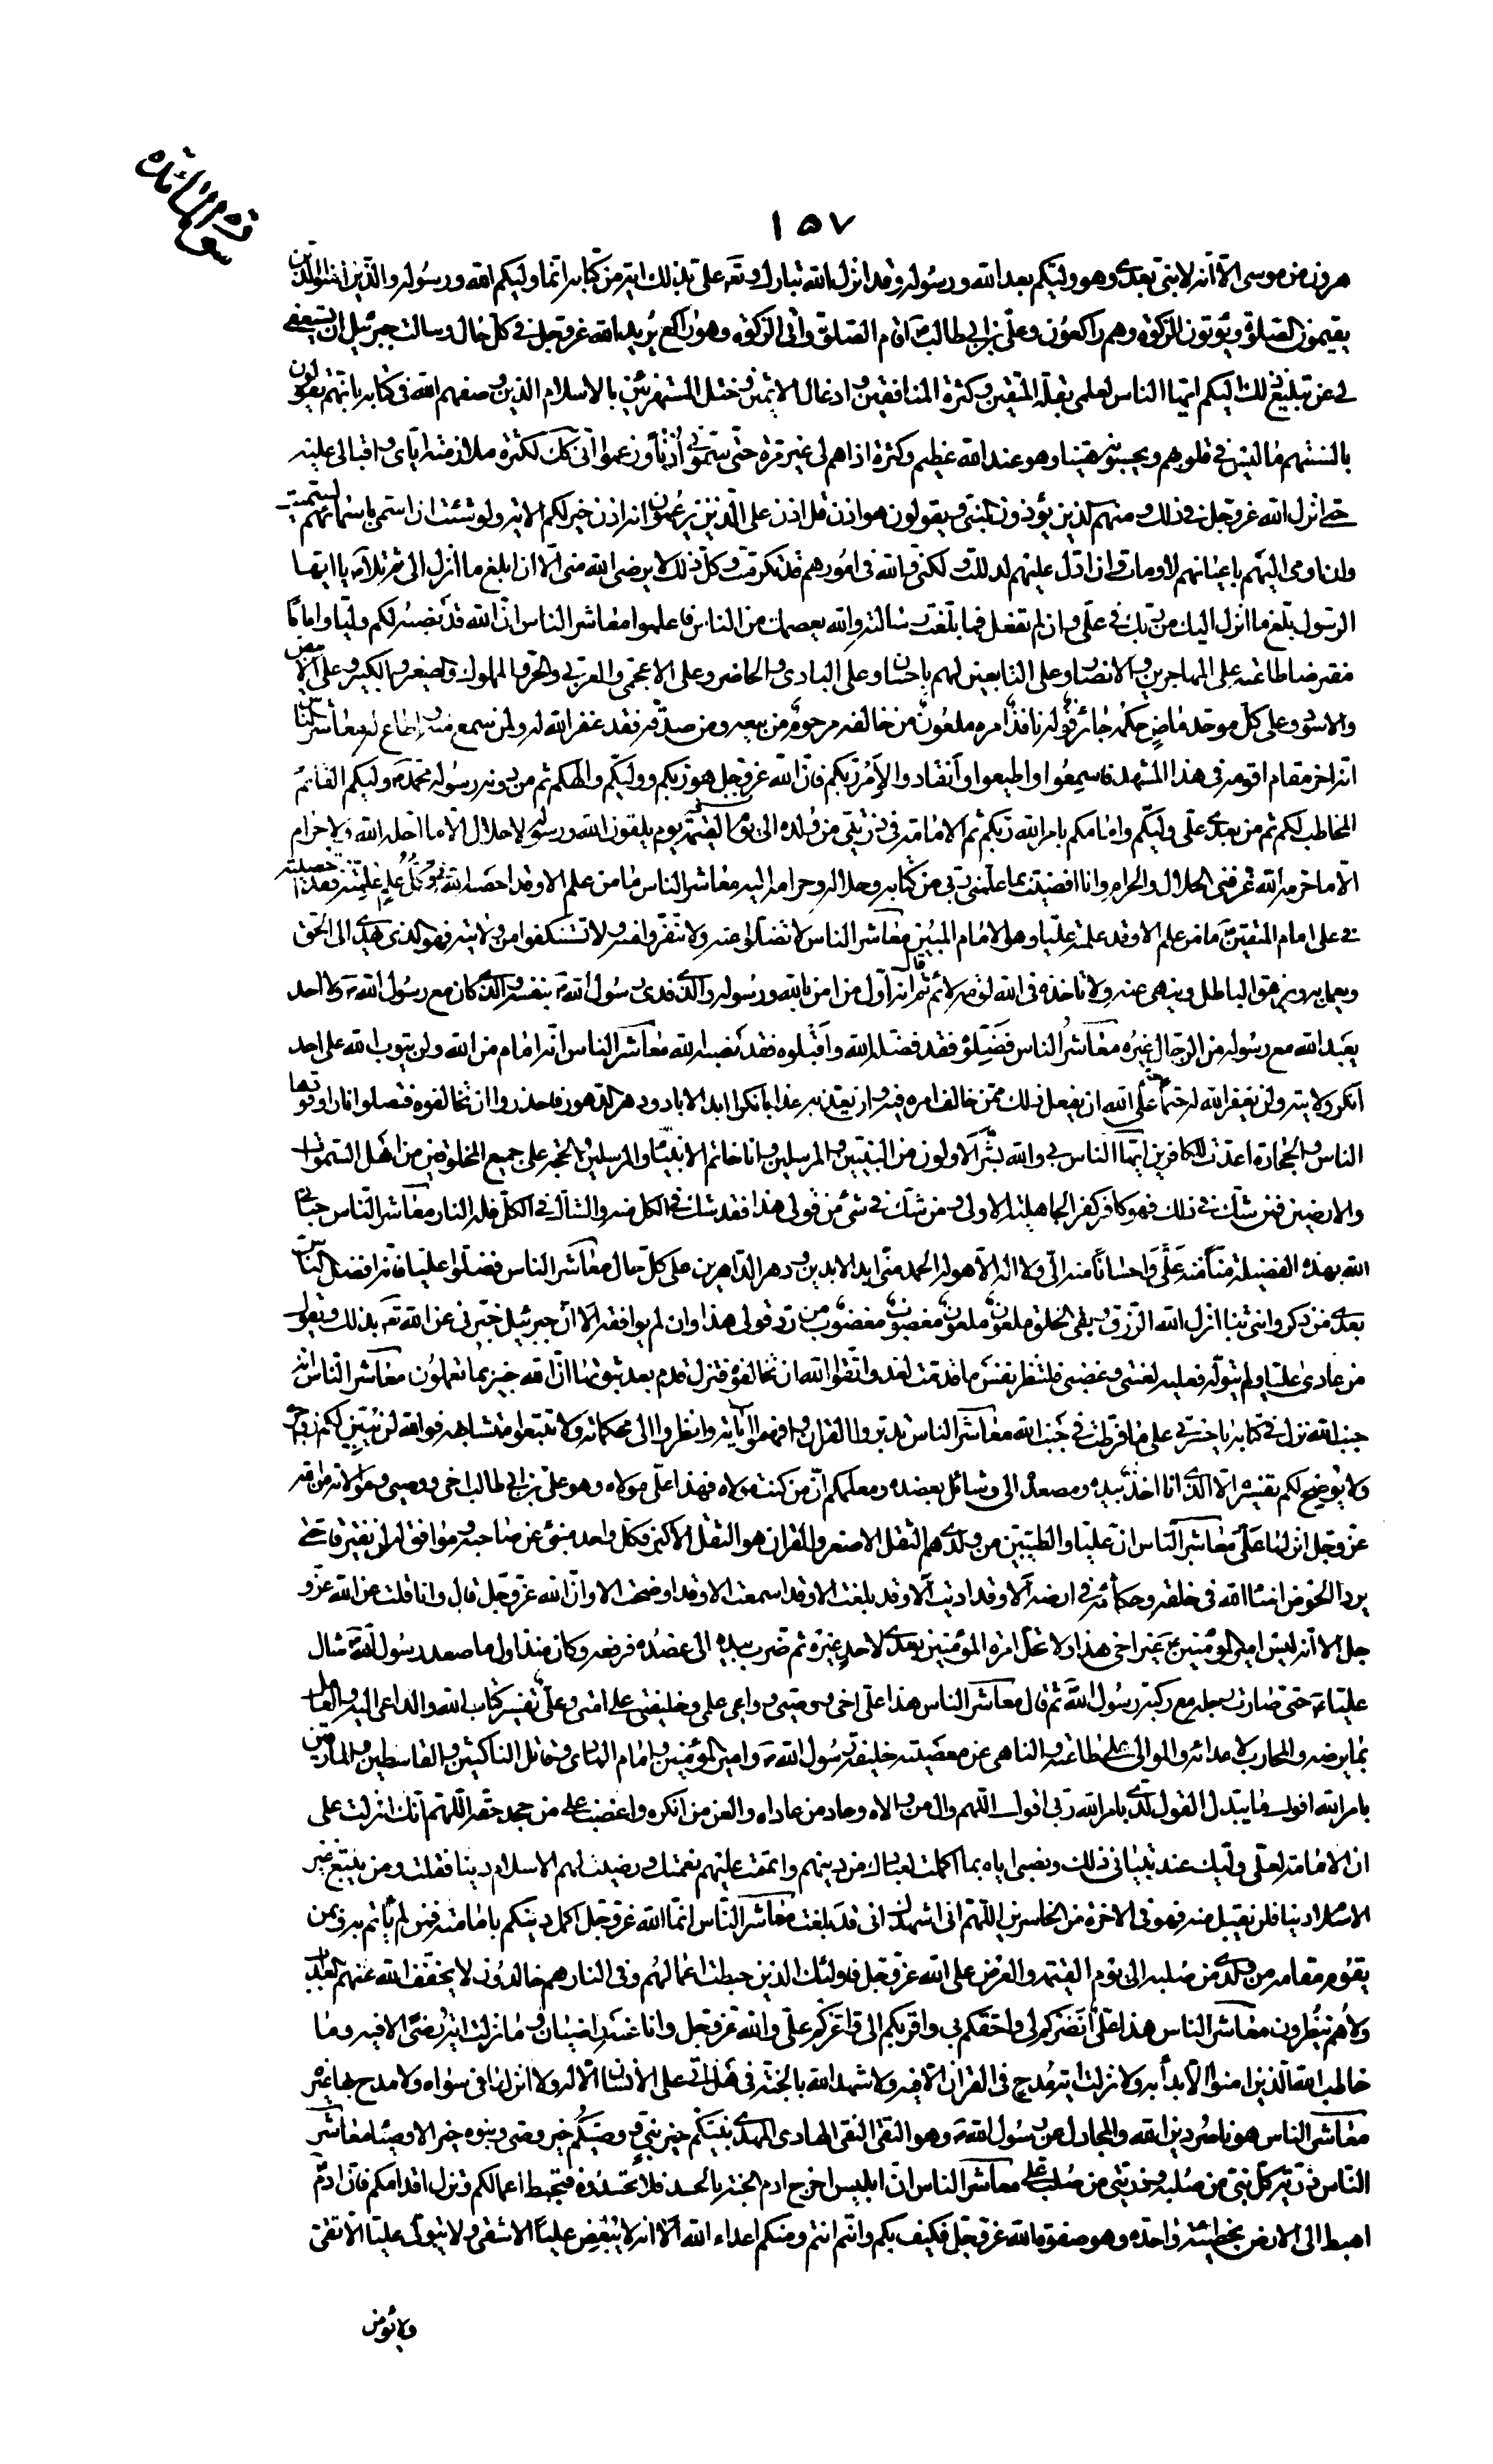 سورة المائدة
١٥٧
هرون من موسى الا انه لا نبى بعدى وهو وليكم بعد الله ورسوله وقد انزل الله تبارك وتعه على بذلك اية من كتابه انما وليكم الله ورسوله والذين امنوا الذين
يقيمون الصلوة ويؤتون الزكوة وهم راكعون وعلى بن ابى طالب ع اقام الصلوة واتى الزكوة وهو راكع يريد الله عز وجل فى كل حال وسالت جبرئيل ان يستعفى
لى عن تبليغ ذلك اليكم ايها الناس لعلمى بقلة المتقين وكثرة المنافقين وادغال الاثمين وختل المستهزئين بالاسلام الذين وصفهم الله فى كتابه بانهم يقولون
بالسنتهم ما ليس فى قلوبهم ويحسبونه هينا وهو عند الله عظيم وكثرة اذاهم لى غير مرة حتى سمونى اذنا وزعموا انى كك لكثرة ملازمته اياى واقبالى عليه
حتى انزل الله عز وجل فى ذلك ومنهم الذين يؤذون النبى ويقولون هو اذن قل اذن على الذين يزعمون انه اذن خير لكم الاية ولو شئت ان اسمى باسمائهم لسميت
وان اومى اليهم باعيانهم لاومات وان ادل عليهم لدللت ولكنى والله فى امورهم قد تكرمت وكل ذلك لا يرضى الله منى الا ان ابلغ ما انزل الى ثم تلا ص يا ايها
الرسول بلغ ما انزل اليك من ربك فى على وان لم تفعل فما بلغت رسالته والله يعصمك من الناس فاعلموا معاشر الناس ان الله قد نصبه لكم وليا واماما
مفترضا طاعته على المهاجرين والانصار وعلى التابعين لهم باحسان وعلى البادى والحاضر وعلى الاعجمى والعربى والحر والمملوك والصغير والكبير وعلى الابيض
والاسود وعلى كل موحد ماض حكمه جائز قوله نافذ امره ملعون من خالفه مرحوم من تبعه ومن صدقه فقد غفر الله له ولمن سمع منه واطاع له معاشر الناس
انه اخر مقام اقومه فى هذا المشهد فاسمعوا واطيعوا وانقادوا لامر ربكم فان الله عز وجل هو ربكم ووليكم والهكم ثم من دونه رسوله محمد ص وليكم القائم
المخاطب لكم ثم من بعدى على وليكم وامامكم بامر الله ربكم ثم الامامة فى ذريتى من ولده الى يوم القيمة يوم يلقون الله ورسوله لا حلال الا ما احله الله ولا حرام
الا ما حرمه الله عرفنى الحلال والحرام وانا افضيت بما علمنى ربى من كتابه وحلاله وحرامه اليه معاشر الناس ما من علم الا وقد احصاه الله فى وكل علم علمته فقد احصيته
فى على امام المتقين ما من علم الا وقد علمته عليا وهو الامام المبين معاشر الناس لا تضلوا عنه ولا تنفروا منه ولا تستنكفوا من ولايته فهو الذى يهدى الى الحق
ويعمل به ويزهق الباطل وينهى عنه ولا تاخذه فى الله لومة لائم ثم قال انه اول من امن بالله ورسوله والذى فدى رسول الله ص بنفسه والذى كان مع رسول الله ص ولا احد
يعبد الله مع رسوله من الرجال غيره معاشر الناس فضلوه فقد فضله الله واقبلوه فقد نصبه الله معاشر الناس انه امام من الله ولن يتوب الله على احد
انكر ولايته ولن يغفر الله له حتما على الله ان يفعل ذلك ممن خالف امره فيه وان يعذبه عذابا نكرا ابد الاباد ودهر الدهور فاحذروا ان تخالفوه فتصلوا نارا وقودها
الناس والحجارة اعدت للكافرين ايها الناس بى والله بشر الاولون من النبيين والمرسلين وانا خاتم الانبياء والمرسلين والحجة على جميع المخلوقين من اهل السموات
والارضين فمن شك فى ذلك فهو كافر كفر الجاهلية الاولى ومن شك فى شئ من قولى هذا فقد شك فى الكل منه والشاك فى الكل فله النار معاشر الناس حبانى
الله بهذه الفضيلة منا منه على واحسانا منه الى ولا اله الا هو له الحمد منى ابد الابدين ودهر الداهرين على كل حال معاشر الناس فضلوا عليا فانه افضل الناس
بعدى من ذكر وانثى بنا انزل الله الرزق وبقى الخلق ملعون ملعون مغضوب مغضوب من رد قولى هذا وان لم يوافقه الا ان جبرئيل خبرنى عن الله تعه بذلك ويقول
من عادى عليا ولم يتوله فعليه لعنتى وغضبى فلتنظر نفس ما قدمت لغد واتقوا الله ان تخالفوه فتزل قدم بعد ثبوتها ان الله خبير بما تعملون معاشر الناس انه
جنب الله نزل فى كتابه يا حسرتى على ما فرطت فى جنب الله معاشر الناس تدبروا القران وافهموا اياته وانظروا الى محكماته ولا تتبعوا متشابهه فوالله لن يبين لكم زواجره
ولا يوضح لكم تفسيره الا الذى انا اخذ بيده ومصعده الى وشائل بعضده ومعلمكم ان من كنت مولاه فهذا على مولاه وهو على بن ابى طالب اخى ووصيى وموالاته من الله
عز وجل انزلها على معاشر الناس ان عليا والطيبين من ولدى هم الثقل الاصغر والقران هو الثقل الاكبر فكل واحد منبئ عن صاحبه وموافق له لن يفترقا حتى
يردا الحوض امناء الله فى خلقه وحكامه فى ارضه الا وقد اديت الا وقد بلغت الا وقد اسمعت الا وقد اوضحت الا وان الله عز وجل قال وانا قلت عن الله عز و
جل الا انه ليس امير المؤمنين غير اخى هذا ولا تحل امرة المؤمنين بعدى لاحد غيره ثم ضرب بيده الى عضده فرفعه وكان منذ اول ما صعد رسول الله ص شال
عليا ع حتى صارت رجله مع ركبة رسول الله ص ثم قال معاشر الناس هذا على اخى ووصيى وواعى علمى وخليفتى على امتى وعلى تفسير كتاب الله والداعى اليه والعامل
بما يرضه والمحارب لاعدائه والموالى على طاعته والناهى عن معصيته خليفة رسول الله ص وامير المؤمنين وامام الهادى وقاتل الناكثين والقاسطين والمارقين
بامر الله اقول ما يبدل القول لدى بامر الله ربى اقول اللهم وال من والاه وعاد من عاداه والعن من انكره واغضب على من جحد حقه اللهم انك انزلت على
ان الامامة لعلى وليك عند تبيانى ذلك ونصبى اياه بما اكملت لعبادك من دينهم واتممت عليهم نعمتك ورضيت لهم الاسلام دينا فقلت ومن يبتغ غير
الاسلام دينا فلن يقبل منه فهو فى الاخرة من الخاسرين اللهم انى اشهدك انى قد بلغت معاشر الناس انما الله عز وجل اكمل دينكم بامامته فمن لم ياتم به وبمن
يقوم مقامه من ولدى من صلبه الى يوم القيمة والعرض على الله عز وجل فاولئك الذين حبطت اعمالهم وفى النار هم خالدون لا يخفف الله عنهم العذاب
ولا هم ينظرون معاشر الناس هذا على انصركم لى واحقكم بى واقربكم الى واعزكم على والله عز وجل وانا عنه راضيان وما نزلت اية رضى الا فيه وما
خاطب الله الذين امنوا الا بدأ به ولا نزلت اية مدح فى القران الا فيه ولا شهد الله بالجنة فى هل اتى على الانسان الا له ولا انزلها فى سواه ولا مدح بها غيره
معاشر الناس هو ناصر دين الله والمجادل عن رسول الله ص وهو التقى النقى الهادى المهدى نبيكم خير نبى ووصيكم خير وصى وبنوه خير الاوصياء معاشر
الناس ذرية كل نبى من صلبه وذريتى من صلب على معاشر الناس ان ابليس اخرج ادم الجنة بالحسد فلا تحسدوه فتحبط اعمالكم وتزل اقدامكم فان ادم
اهبط الى الارض بخطيئة واحدة وهو صفوة الله عز وجل فكيف بكم وانتم انتم ومنكم اعداء الله الا انه لا يبغض عليا الا شقى ولا يتولى عليا الا تقى
ولا يؤمن